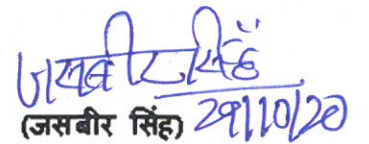 जसबीर सिंह
(जसबीर सिंह) 29/10/20